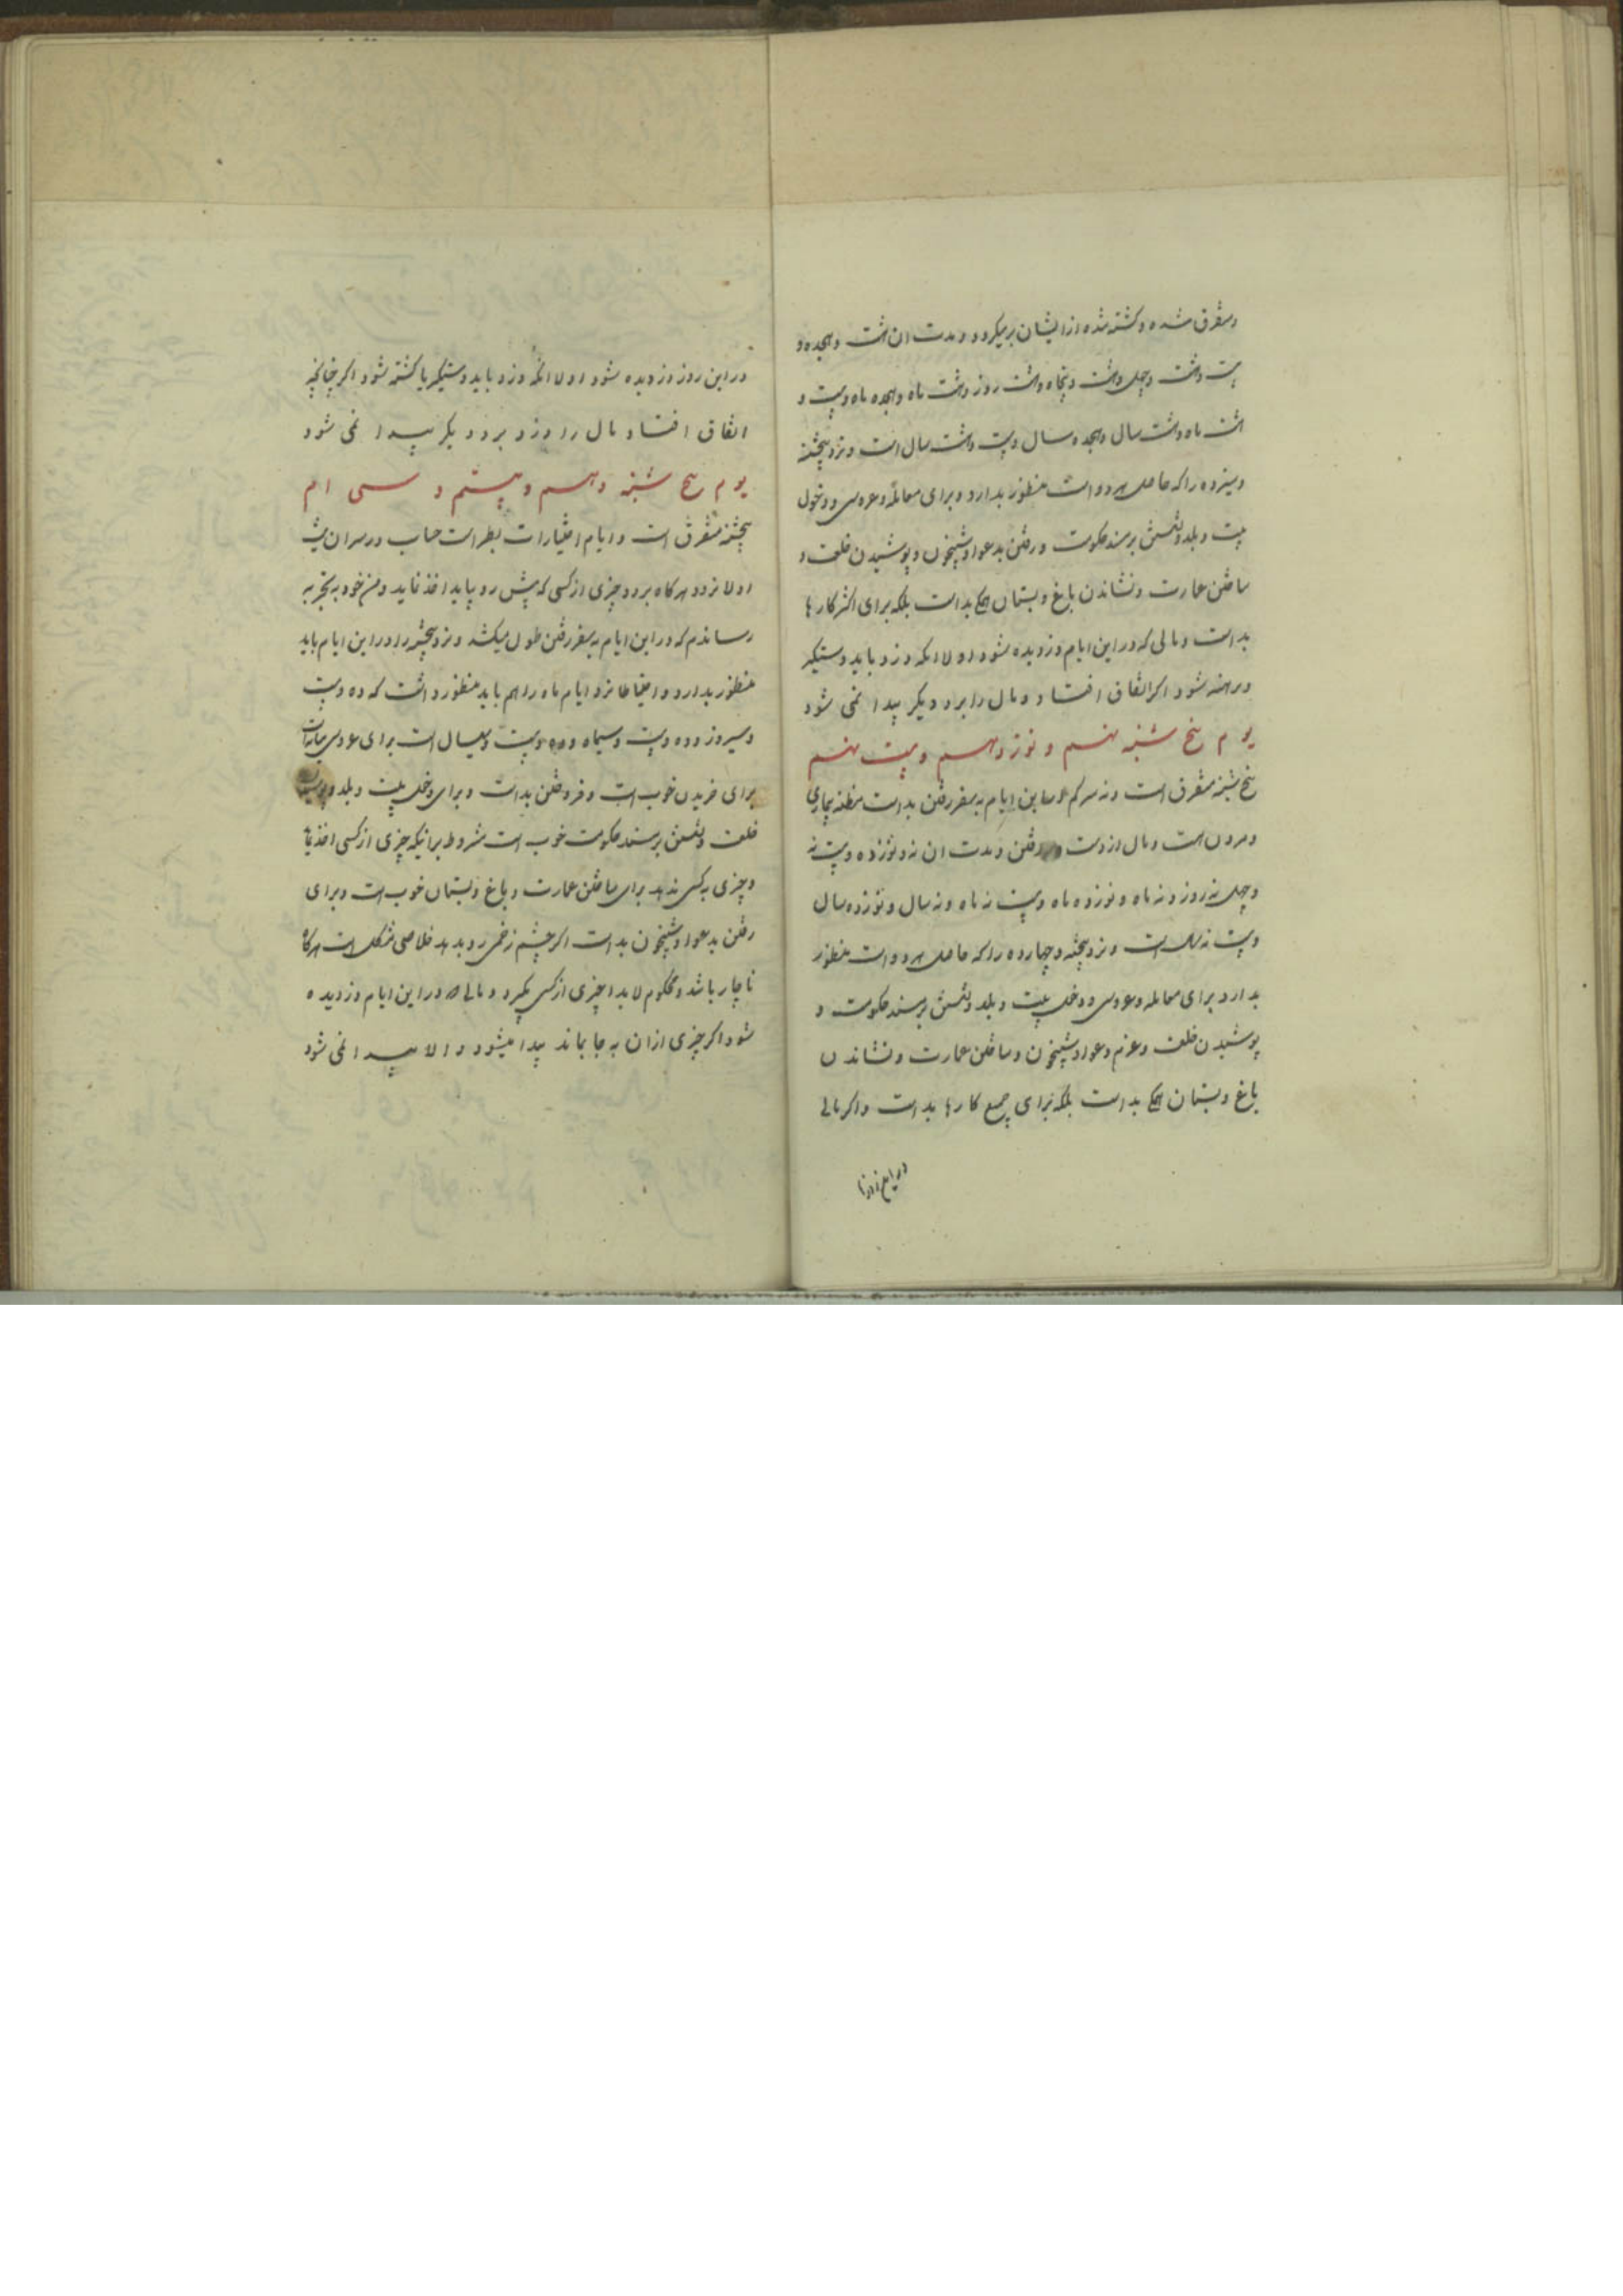 و متفرق شده و کشته شده از ایشان برمیگردد و مدت ان هشت و هجده و
بیست و هشت و چهل و هشت و پنجاه و هشت روز و هشت ماه و هجده ماه و بیست و
هشت ماه و هشت سال و هجده سال و بیست و هشت سال است و نزد پنجشنبه
و سیزده را که حاصل هر دو است منظور بدارد و برای معامله و عروسی و دخول
بیت و بلد و نشستن بر مسند حکومت و رفتن بدعوا و شبیخون و پوشیدن خلعت و
ساختن عمارت و نشاندن باغ و بستان همگی بد است بلکه برای اکثر کارها
بد است و مالی که در این ایام دزدیده شود اولا انکه دزد باید دستگیر
و برهنه شود اگر اتفاق افتاد و مال را برد دیگر پیدا نمی شود
یوم پنج شنبه نهم و نوزدهم و بیست نهم
پنج شنبه متفرق است و نه در این ایام به سفر رفتن بد است مظنه بیماری
و مردن است و مال از دست رفتن و مدت ان نه و نوزده و بیست نه
و چهل نه روز و نه ماه و نوزده ماه و بیست نه ماه و نه سال و نوزده سال
و بیست نه سال است و نزد پنجشنبه و چهارده را که حاصل هر دو است منظور
بدارد برای معامله و عروسی و دخل بیت و بلد و نشستن بر مسند حکومت و
پوشیدن خلعت و عزم دعوا و شبیخون و ساختن عمارت و نشاندن
باغ و بستان همگی بد است بلکه برای جمیع کارها بد است و اگر مالی
در این روز دزدیده شود اولا انکه دزد باید دستگیر یا کشته شود اگر چنانچه
اتفاق افتاد و مال را دزد برد دیگر پیدا نمی شود
یوم پنج شنبه دهم و بیستم و سی ام
پنجشنبه متفرق است و ایام اختیارات بطر است حساب در سر ان
اولا نزد هر کاه برود چیزی از کسی که پیش رو بیاید اخذ نماید و من خود به تجربه
رساندم که در این ایام به سفر رفتن طول میکشد و نزد پنجشنبه را در این ایام باید
منظور بدارد و احتیاطا نزد ایام ماه را هم باید منظور داشت که ده و بیست
و سی روز و ده و بیست و سی ماه و ده و بیست و سی سال است برای عروسی
برای خریدن خوب است و فروختن بد است و برای دخل بیت و بلد و پوشیدن
خلعت و نشستن بر مسند حکومت خوب است مشروط بر اینکه چیزی از کسی اخذ نماید
و چیزی به کسی ندهد برای ساختن عمارت و باغ و بستان خوب است و برای
رفتن بدعوا و شبیخون بد است اگر چشم زخمی رو بدهد خلاصی مشکل است هر کاه
ناچار باشد و محکوم لابد چیزی از کسی بگیرد و مالی که در این ایام دزدیده
شود اگر چیزی از ان به جا بماند پیدا میشود و الا پیدا نمی شود